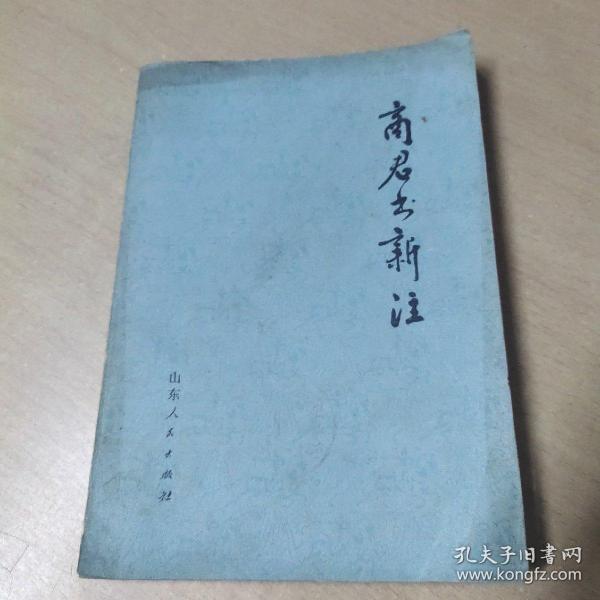 商君书新注
山东人民出版社
孔夫子旧书网
www.kongfz.com